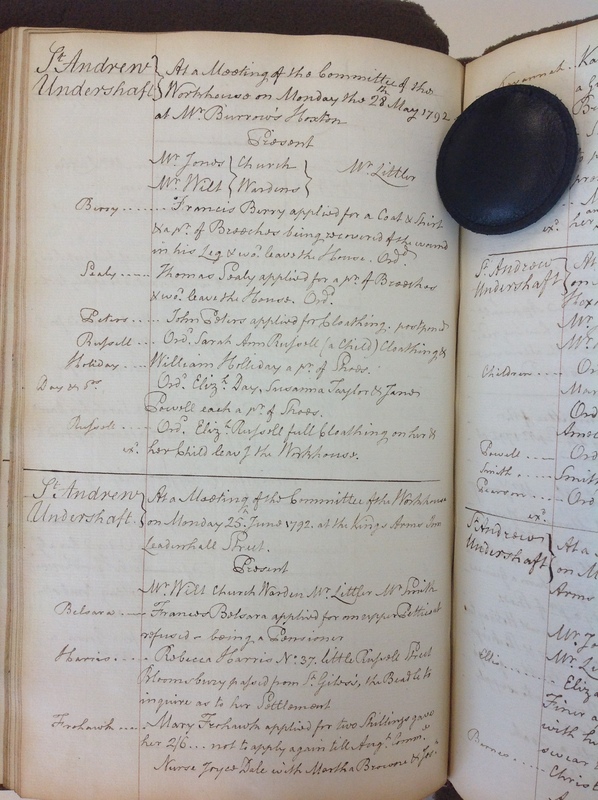 St. Andrew Undershaft } At a Meeting of the Committee of the
Workhouse on Monday the 28th May 1792
at Mr. Burrow's Hoxton
Present
Mr. Jones } Church Mr. Littler
Mr. Wilt } Wardens
Berry ...... Francis Berry applied for a Coat & Shirt
& a pr. of Breeches being recovered of the wound
in his Leg & wo. leave the House. Ord.
Sealy ..... Thomas Sealy applied for a pr. of Breeches
& wo. leave the House. Ord.
Peters .... John Peters applied for Cloathing. postpond
Russell .... Ord. Sarah Ann Russell (a Child) Cloathing &
Holiday .... William Holliday a pr. of Shoes.
Day & os. Ord. Eliz. Day, Susanna Taylor & Jane
Powell each a pr. of Shoes.
Russell .... Ord. Eliz. Russell full Cloathing on her &
ex. her Child leavg the Workhouse.
St. Andrew Undershaft } At a Meeting of the Committee of the Workhouse
on Monday 25th June 1792. at the Kings Arms Inn
Leadenhall Street.
Present
Mr. Wilt Church Warden Mr. Littler Mr. Smith
Belsara .... Frances Belsara applied for an upper Petticoat
refused - being a Pensioner
Harris .... Rebecca Harris No. 37. little Russell Street
Bloomsbury passed from St. Giles's, the Beadle to
inquire as to her Settlement
Frohawk .... Mary Frohawk applied for two Shillings gave
her 2/6 ... not to apply again till Augt. Comm.
Nurse Joyce Dale with Martha Browne &
St. Andrew
Undershaft }
Children ....
Powell ....
Smith ....
Pierson ....
ex.
St. Andrew
Undershaft }
Ellis
Barnes